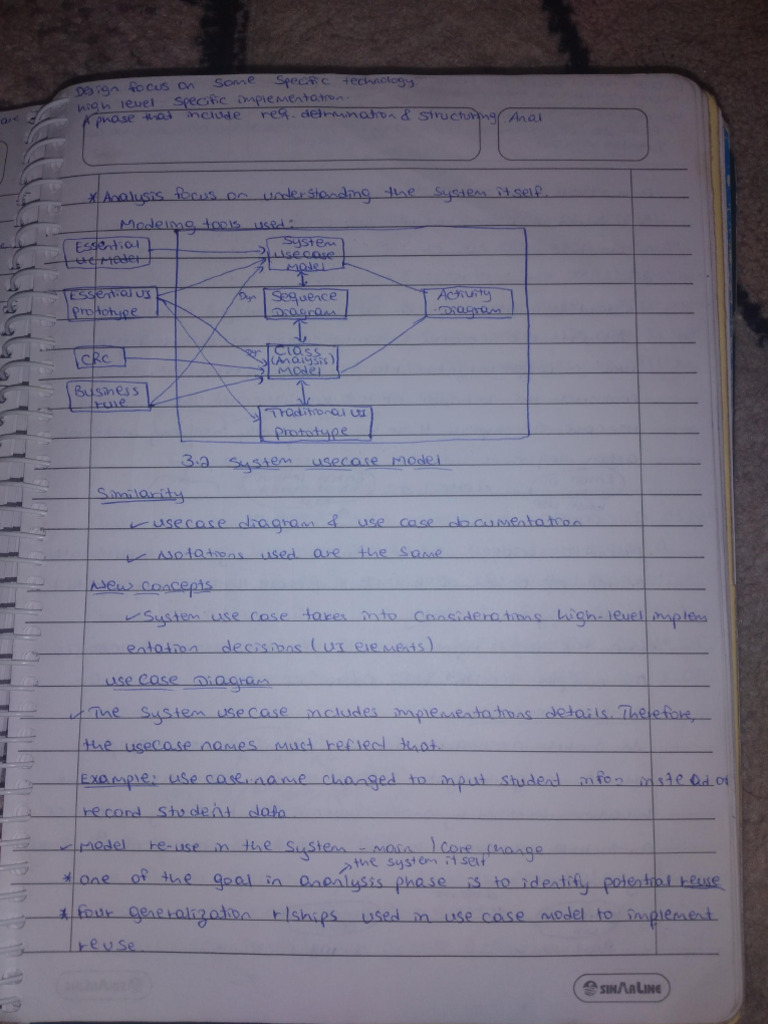 Design focus on some specific technology
high level specific implementation.
A phase that include req. detrmination & structuring
Anal
* Analysis focus on understanding the system itself.
Modeling tools used:
Essential
uc Model
System
use case
Model
Essential UI
prototype
Dyn
Sequence
Diagram
Activity
Diagram
CRC
Class
(Analysis)
Model
Business
rule
Traditional UI
prototype
3.2 System usecase Model
Similarity
✓ usecase diagram & use case documentation
✓ Notations used are the same
New concepts
✓ System use case takes into considerations high-level implem
entation decisions (UI elements)
use case Diagram
✓ The System usecase includes implementations details. Therefore,
the usecase names must reflect that.
Example: use case name changed to input student info instead of
record student data
✓ Model re-use in the System - main / core change
the system itself
* one of the goal in ananlysis phase is to identify potential reuse
* four generalization r/ships used in use case model to implement
reuse
SINARLINE